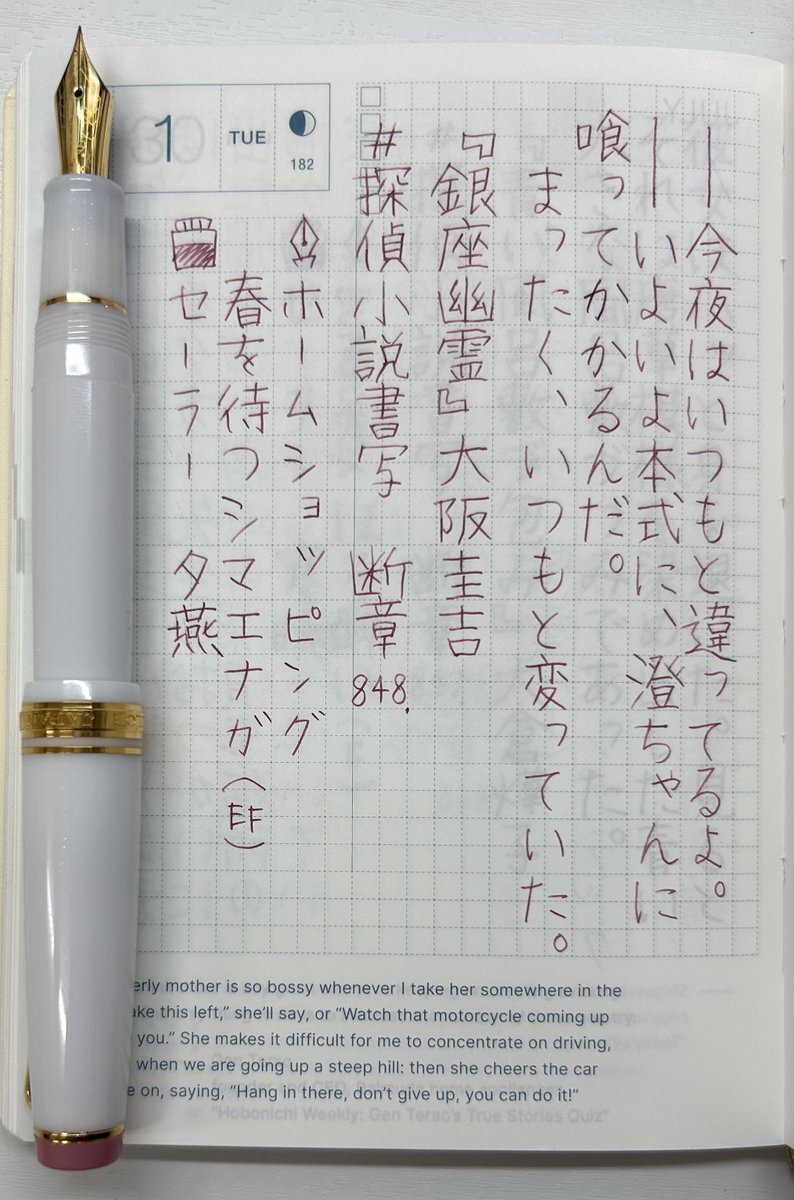 1
TUE
182
―今夜はいつもと違ってるよ。
―いよいよ本式に、澄ちゃんに
喰ってかかるんだ。
まったく、いつもと変っていた。
『銀座幽霊』大阪圭吉
#探偵小説書写 断章848.
ホームショッピング
春を待つシマエナガ(EF)
セーラー 夕燕
erly mother is so bossy whenever I take her somewhere in the
ake this left,” she’ll say, or “Watch that motorcycle coming up
you.” She makes it difficult for me to concentrate on driving,
when we are going up a steep hill: then she cheers the car
e on, saying, “Hang in there, don’t give up, you can do it!”